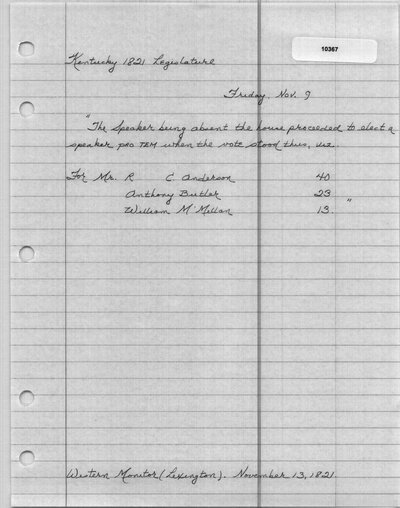 10367
Kentucky 1821 Legislature
Friday, Nov. 9
"The Speaker being absent the house proceeded to elect a
speaker pro tem when the vote stood thus, viz.
For Mr. R C. Anderson 40
Anthony Butler 23
William M'Millan 13. "
Western Monitor (Lexington). November 13, 1821.